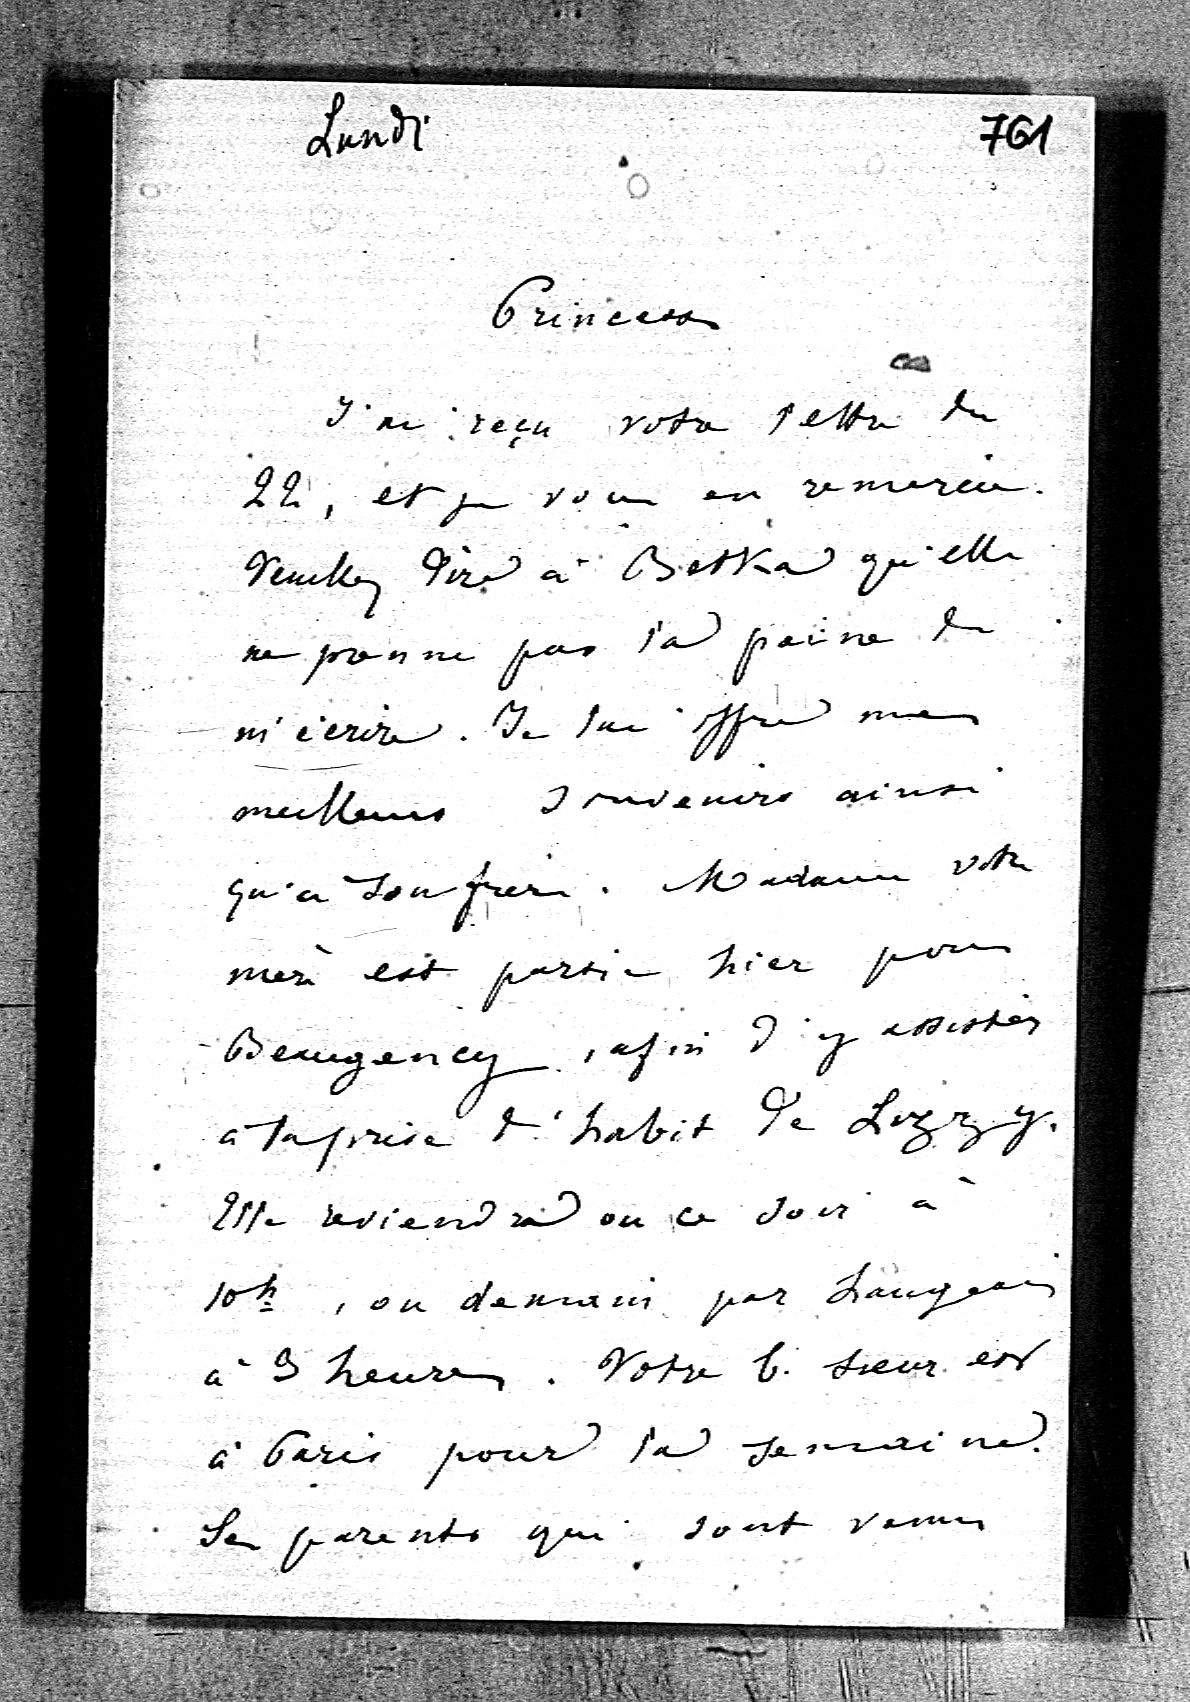 Lundi 761
Princesse
J'ai reçu votre lettre du
22, et je vous en remercie.
Veuillez dire à Betka qu'elle
ne prenne pas la peine de
m'écrire. Je lui offre mes
meilleurs souvenirs ainsi
qu'à son frère. Madame votre
mère est partie hier pour
Beaugency, afin d'y assister
à la prise d'habit de Lizzy.
Elle reviendra ou ce soir à
10h, ou demain par Langeais
à 3 heures. Votre b. sœur est
à Paris pour la semaine.
Ses parents qui sont venus